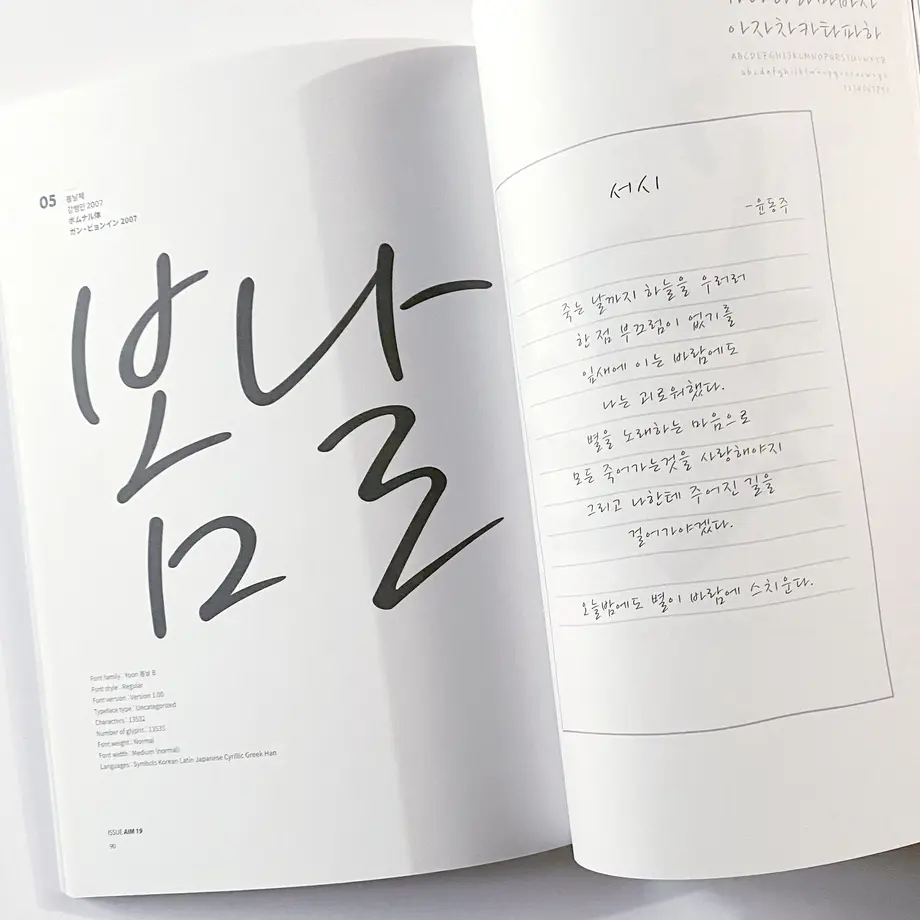 05
봄날체
강병인 2007
ボムナル体
ガン・ビョンイン 2007
봄날
Font family : Yoon 봄날 B
Font style : Regular
Font version : Version 1.00
Typeface type : Uncategorized
Characters : 13532
Number of glyphs : 13535
Font weight : Normal
Font width : Medium (normal)
Languages : Symbols Korean Latin Japanese Cyrillic Greek Han
ISSUE AIM 19
90
아자차카타파하
ABCDEFGHIJKLMNOPQRSTUVWXYZ
서시
-윤동주
죽는 날까지 하늘을 우러러
한 점 부끄럼이 없기를
잎새에 이는 바람에도
나는 괴로워했다.
별을 노래하는 마음으로
모든 죽어가는것을 사랑해야지
그리고 나한테 주어진 길을
걸어가야겠다.
오늘밤에도 별이 바람에 스치운다.